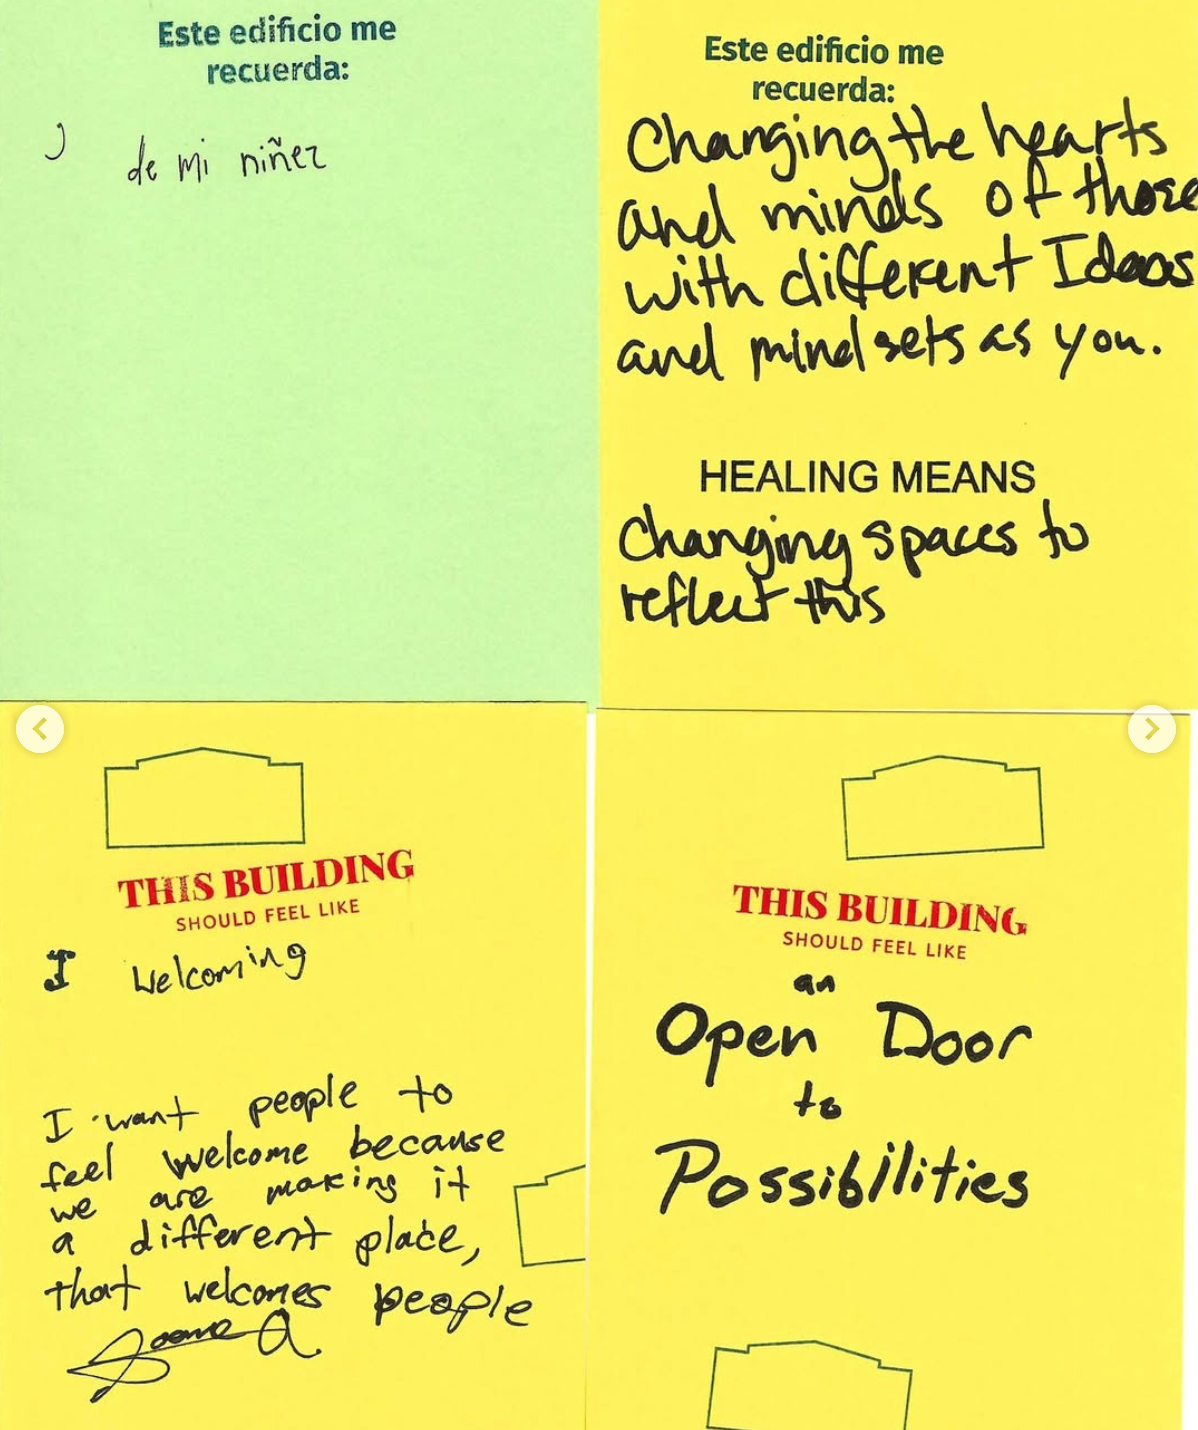 Este edificio me
recuerda:
de mi niñez
Este edificio me
recuerda:
Changing the hearts
and minds of those
with different Ideas
and mindsets as you.
HEALING MEANS
Changing spaces to
reflect this
THIS BUILDING
SHOULD FEEL LIKE
I welcoming
I want people to
feel welcome because
we are making it
a different place,
that welcomes people
THIS BUILDING
SHOULD FEEL LIKE
an
Open Door
to
Possibilities